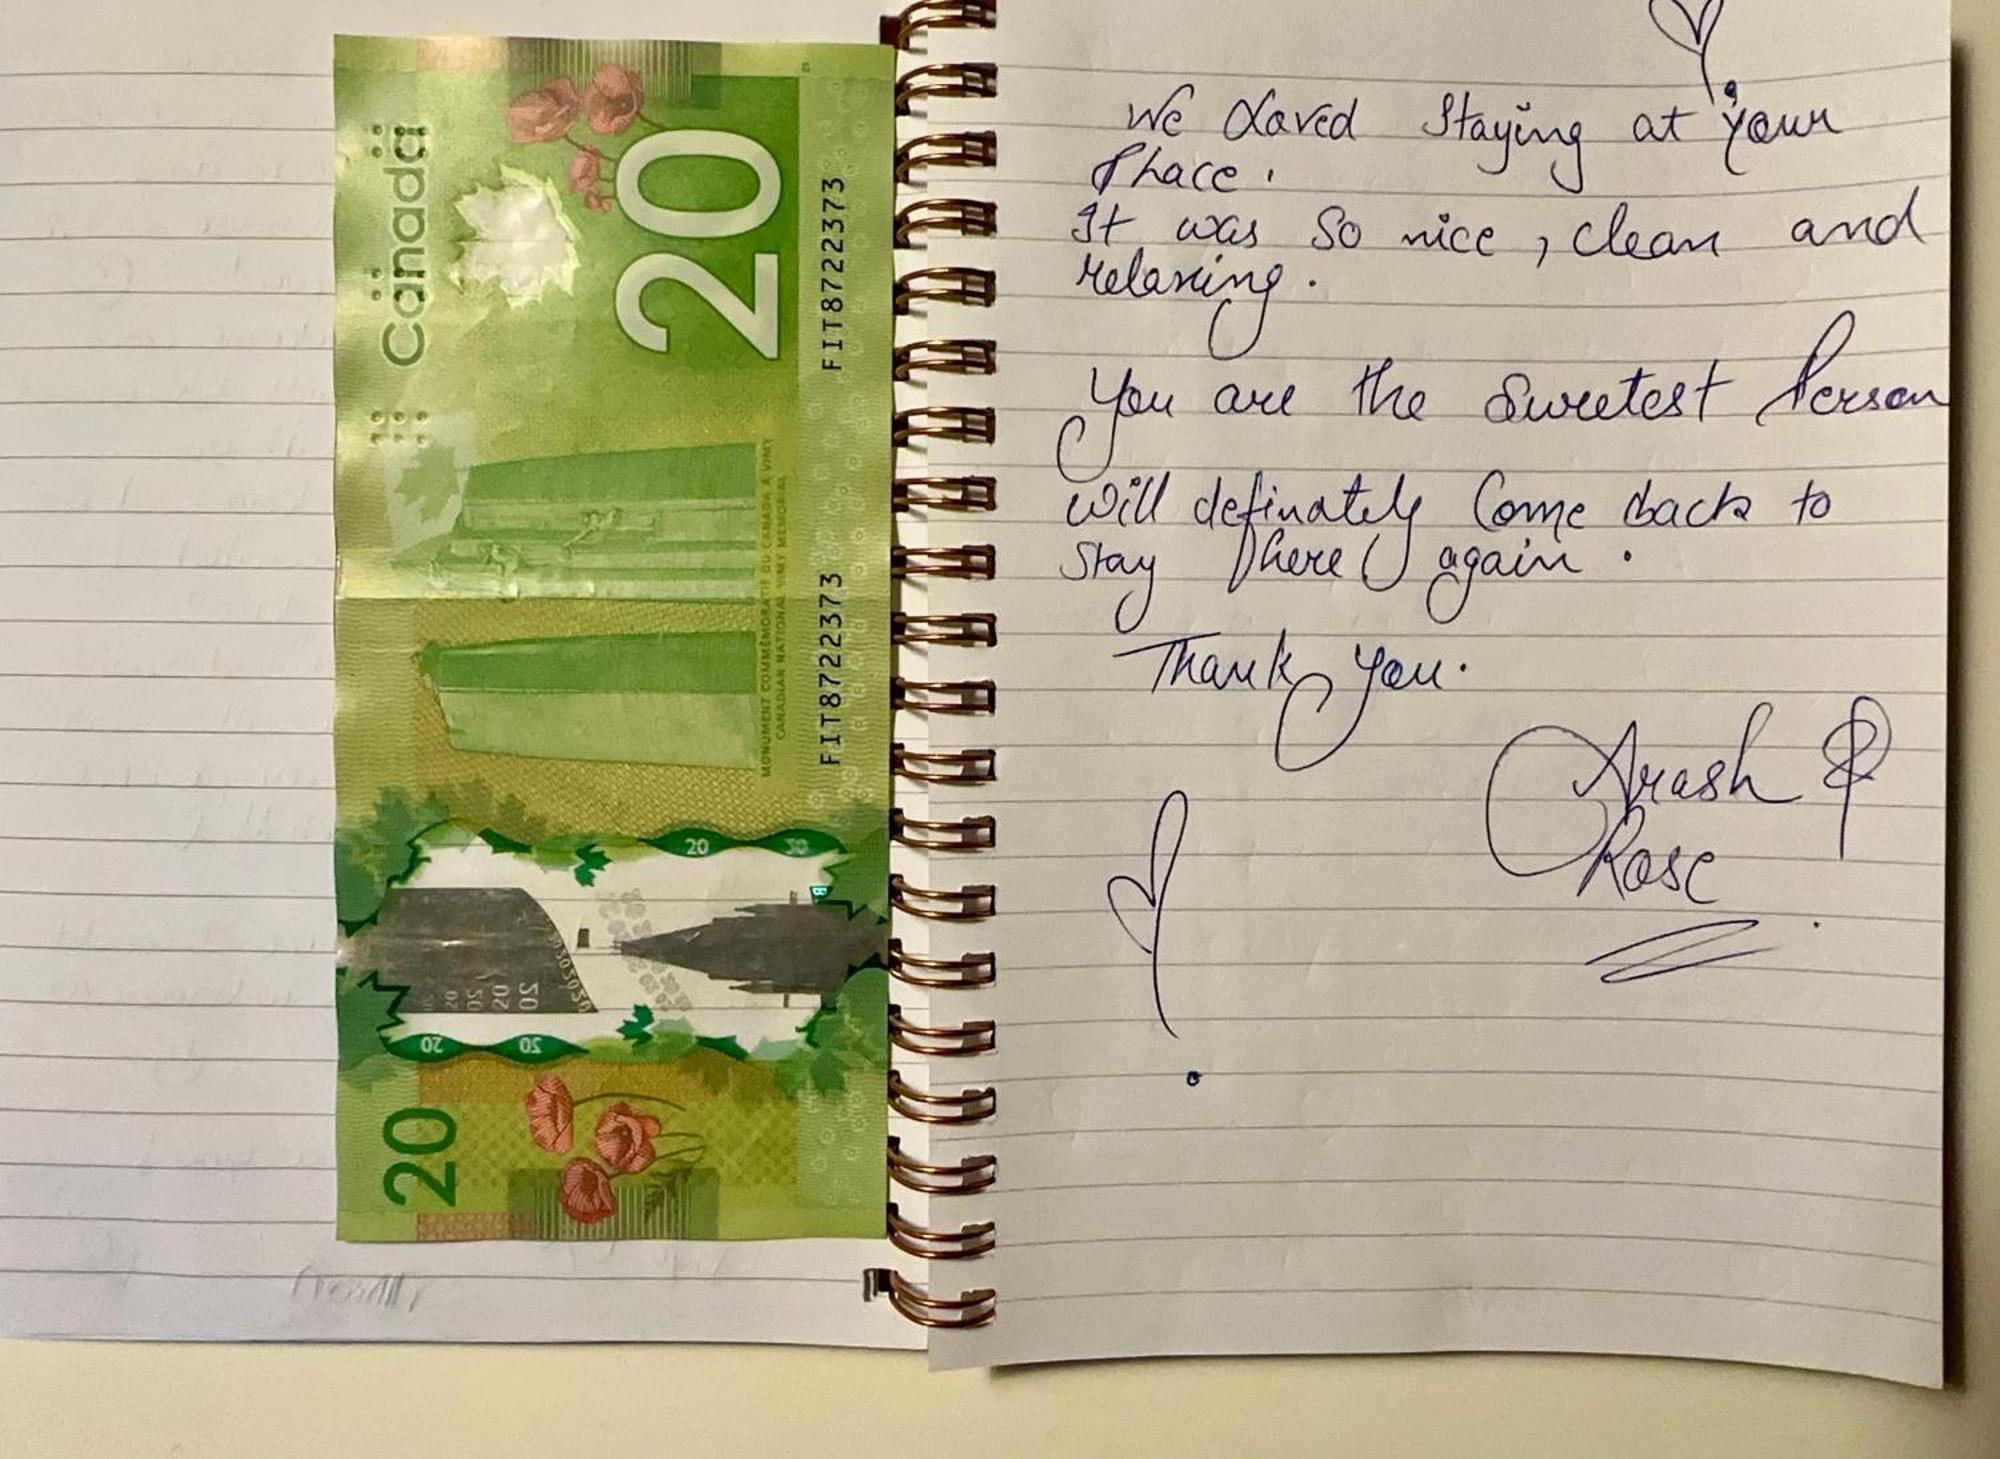 Canada
20
FIT8722373
MONUMENT COMMÉMORATIF DU CANADA À VIMY
CANADIAN NATIONAL VIMY MEMORIAL
FIT8722373
20
20
20
20
20
We Loved Staying at your
Place.
It was so nice, clean and
relaxing.
You are the sweetest Person
will definately Come back to
stay here again.
Thank you.
Arash &
Rose